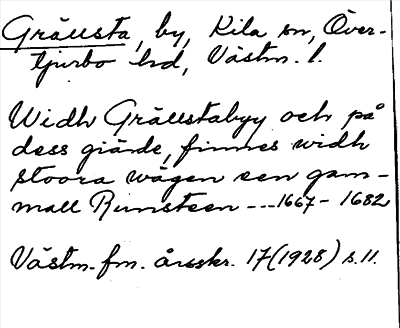 Grällsta, by, Kila sn, Över-
tjurbo hd, Västm. l.
Widh Grällstabyy och på
dess giärde, finnes widh
stoora wägen een gam-
mall Runsteen ---1667-1682
Västm. fm. årsskr. 17(1928) s.11.